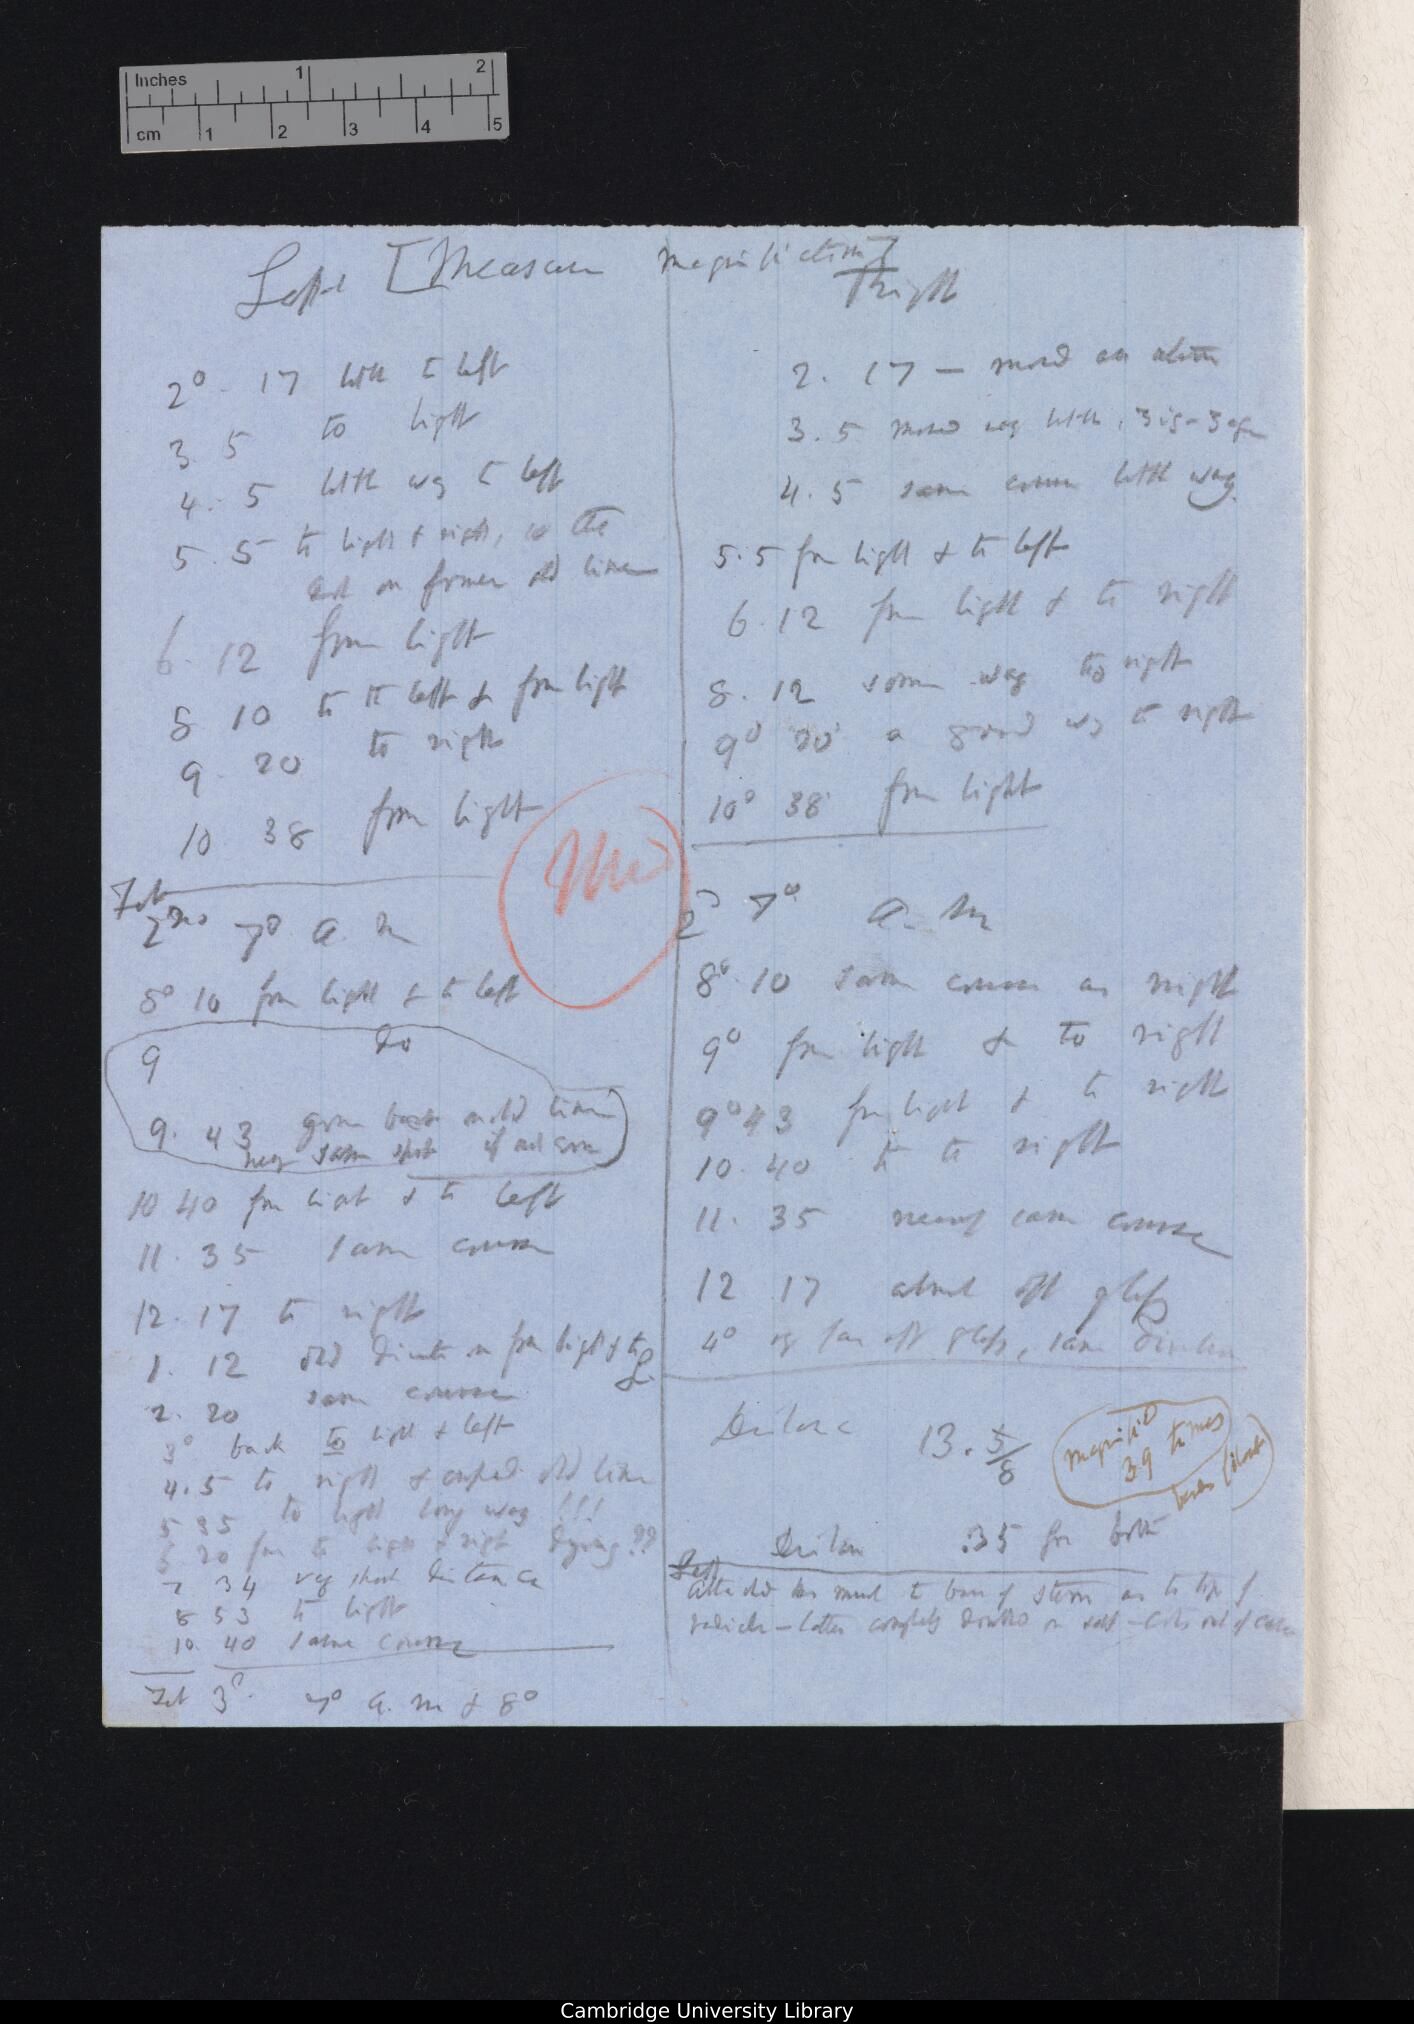 Inches 1 2
cm 1 2 3 4 5
Left [Measure magnification]
Right
2° 17 little to left
3 5 to light
4. 5 little way to left
5. 5 to light & right, so the
dot on former old line
6. 12 from light
8 10 to left & from light
9 20 to right
10 38 from light
2. 17 — moved as above
3. 5 moved very little, zig-zag
4. 5 same course little way
5. 5 from light & to left
6. 12 from light & to right
8. 12 some way to right
9° 20' a good way to right
10° 38' from light
Feb
2nd 7° a. m
8° 10 from light & to left
9 do
9. 43 gone back on old line
near same spot if not error
10 40 from light & to left
11. 35 same course
12. 17 to right
1. 12 old direction from light & to L
2. 20 same course
3° back to light & left
4. 5 to right & crossed old line
5 35 to light long way !!!
6 20 to light & right dying??
7 34 very short distance
8 53 to light
10. 40 same course
Feb 3d. 7° a. m & 8°
2d 7° a. m
8° 10 same course as night
9° from light & to right
9° 43 from light & to right
10. 40 to right
11. 35 nearly same course
12 17 almost off glass
4° very far off glass, same direction
Distance 13. 5/8
magnified
39 times
Distance .35 for both
Left
as to tip of
radicle — latter completely